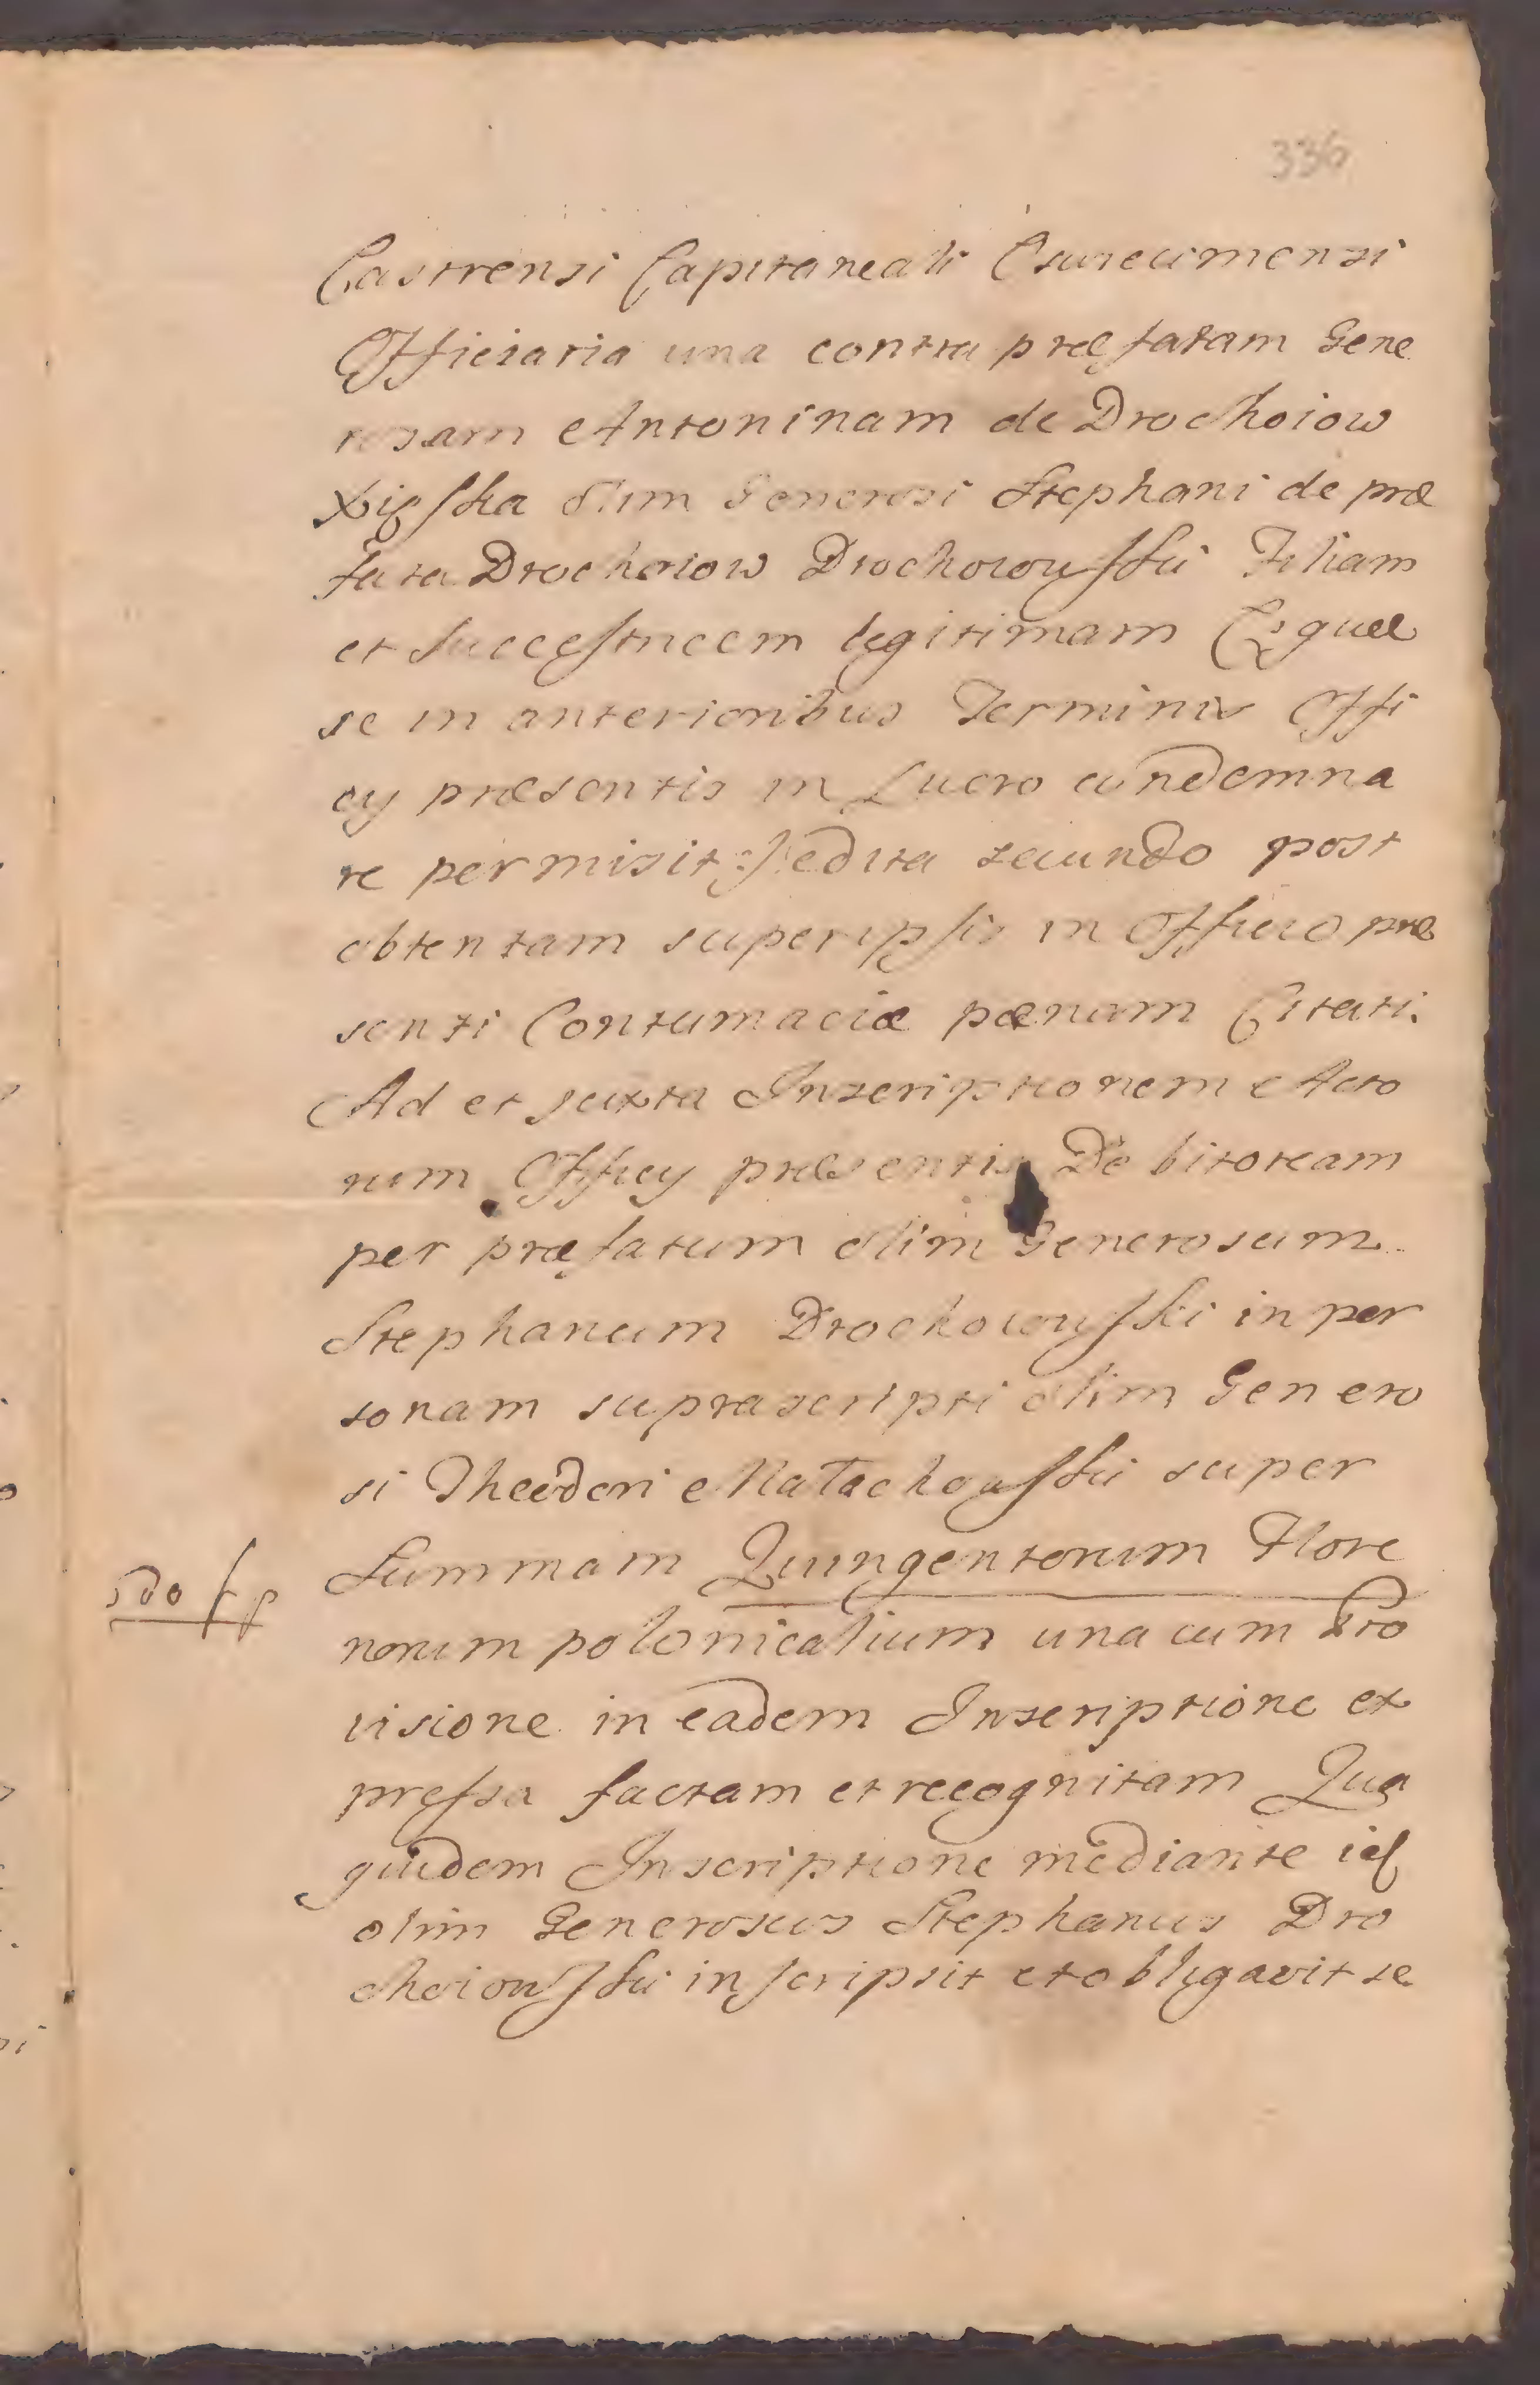 336
Castrensi Capitaneali Osuiecimensi
Officiaria una contra præfatam Gene
rosam Antoninam de Drochoiow
olim Generosi Stephani de præ
fata Drochoiow Drochoiowsski Filiam
et Successricem legitimam (: quæ
se in anterioribus Terminis Offi
cy præsentis in Lucro condemna
re permisit :) edita secundo post
obtentam super ipsis in Officio præ
senti Contumaciæ pænam Citati.
Ad et juxta Inscriptionem Acto
rum Officy præsentis Debitoream
per præfatum olim Generosum
Stephanum Drochoiowsski in per
sonam suprascripti olim Genero
si Theodori super
Summam Quingentorum Flore
norum polonicalium una cum Pro
visione in eadem Inscriptione ex
pressa factam et recognitam Qua
quidem Inscriptione mediante id
olim Generosus Stephanus Dro
choiowsski inscripsit et obligavit se
500 fp